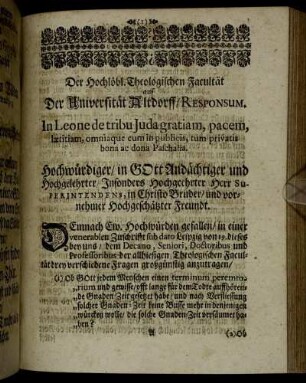 (1)
Der Hochlöbl. Theologischen Facultät
auf
Der Universität Altdorff/RESPONSUM.
In Leone de tribu Juda gratiam, pacem,
lætitiam, omniaque cum in publicis, tum privatis
bona ac dona Paschalia.
Hochwürdiger/ in GOtt Andächtiger und
Hochgelehrter/ Insonders Hochgeehrter Herr Su-
PERINTENDENS, in Christo Bruder/ und vor-
nehmer Hochgeschätzter Freundt.
DEmnach Ew. Hochwürden gefallen/ in einer
venerablen Zuschrifft sub dato Leipzig von 19. dieses
bey uns/ dem Decano, Seniori, Doctoribus und
Professoribus der allhiesigen Theologischen Facul-
tät drey verschiedene Fragen großgünstig anzutragen/
(1) Ob GOtt jedem Menschen einen terminum peremto-
rium und gewisse/ offt lange für dem Tode auffhören-
de Gnaden Zeit gesetzet habe/ und nach Verfliessung
solcher Gnaden-Zeit keine Busse mehr in demjenigen
würcken wolle/ die solche Gnaden-Zeit versäumet ha-
ben?
A (2) Ob